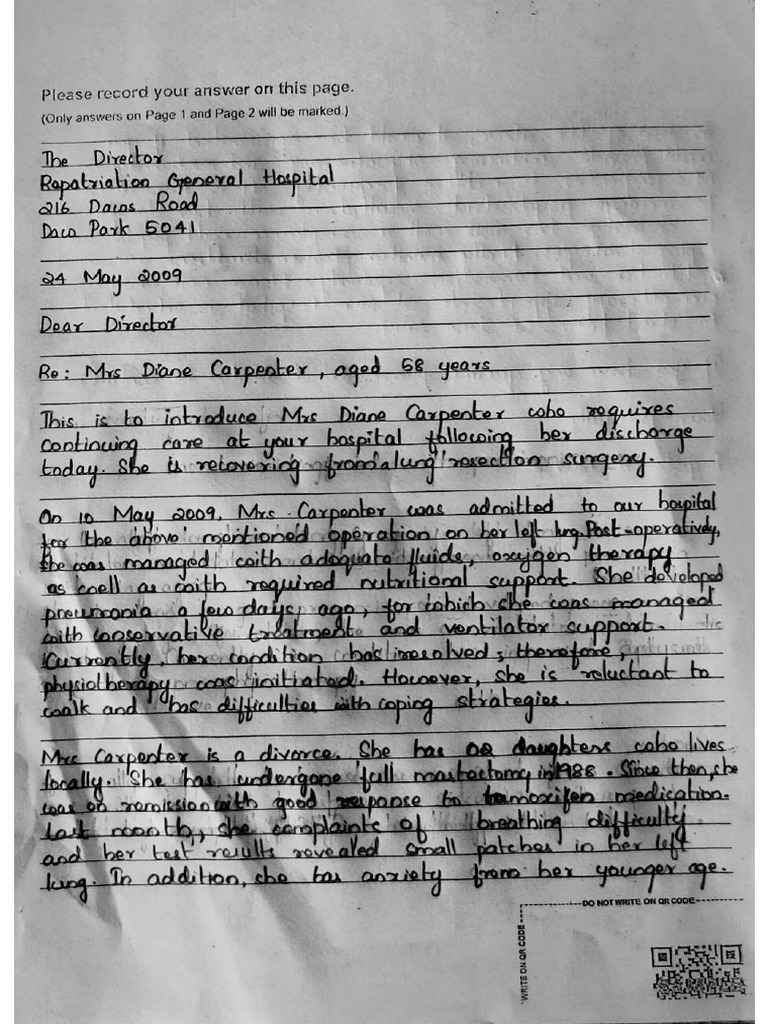 Please record your answer on this page.
(Only answers on Page 1 and Page 2 will be marked.)
The Director
Repatriation General Hospital
216 Dacos Road
Daco Park 5041
24 May 2009
Dear Director
Re: Mrs Diane Carpenter, aged 58 years
This is to introduce Mrs Diane Carpenter who requires
continuing care at your hospital following her discharge
today. She is recovering from a lung resection surgery.
On 10 May 2009, Mrs. Carpenter was admitted to our hospital
for the above mentioned operation on her left lung. Post-operatively,
she was managed with adequate fluids, oxygen therapy
as well as with required nutritional support. She developed
pneumonia a few days ago, for which she was managed
with conservative treatment and ventilator support.
Currently, her condition has resolved; therefore,
physiotherapy was initiated. However, she is reluctant to
walk and has difficulties with coping strategies.
Mrs Carpenter is a divorce. She has daughters who lives
locally. She has undergone full mastectomy in 1988. Since then, she
was on remission with good response to tamoxifen medication.
Last month, she complaints of breathing difficulty
and her test results revealed small patches in her left
lung. In addition, she has anxiety from her younger age.
DO NOT WRITE ON QR CODE
WRITE ON QR CODE